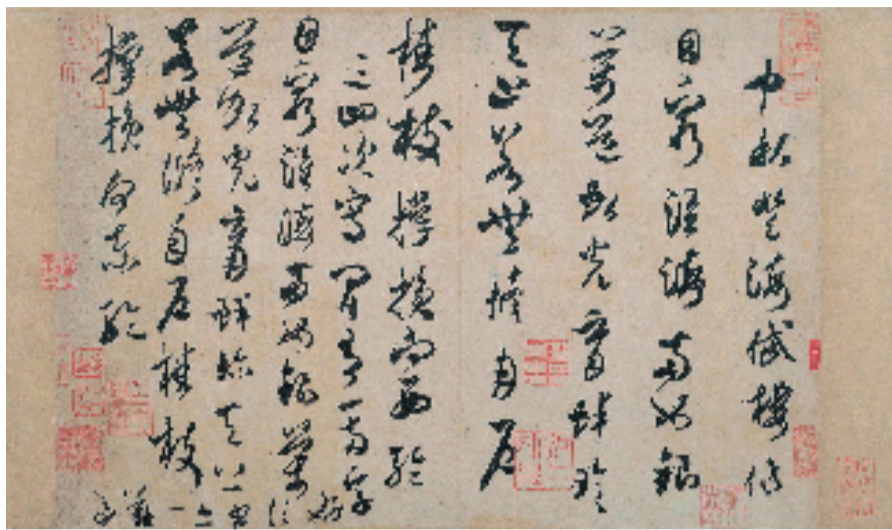 中秋登海岱樓作
目窮淮海兩如銀
萬道虹光育蚌珍
天上若無修月戶
桂枝撐損向西輪
三四次寫間有一兩字
好信書亦一難事
目窮淮海兩如銀萬
道虹光育蚌珍天上
若無修月戶桂枝
撐損向東輪